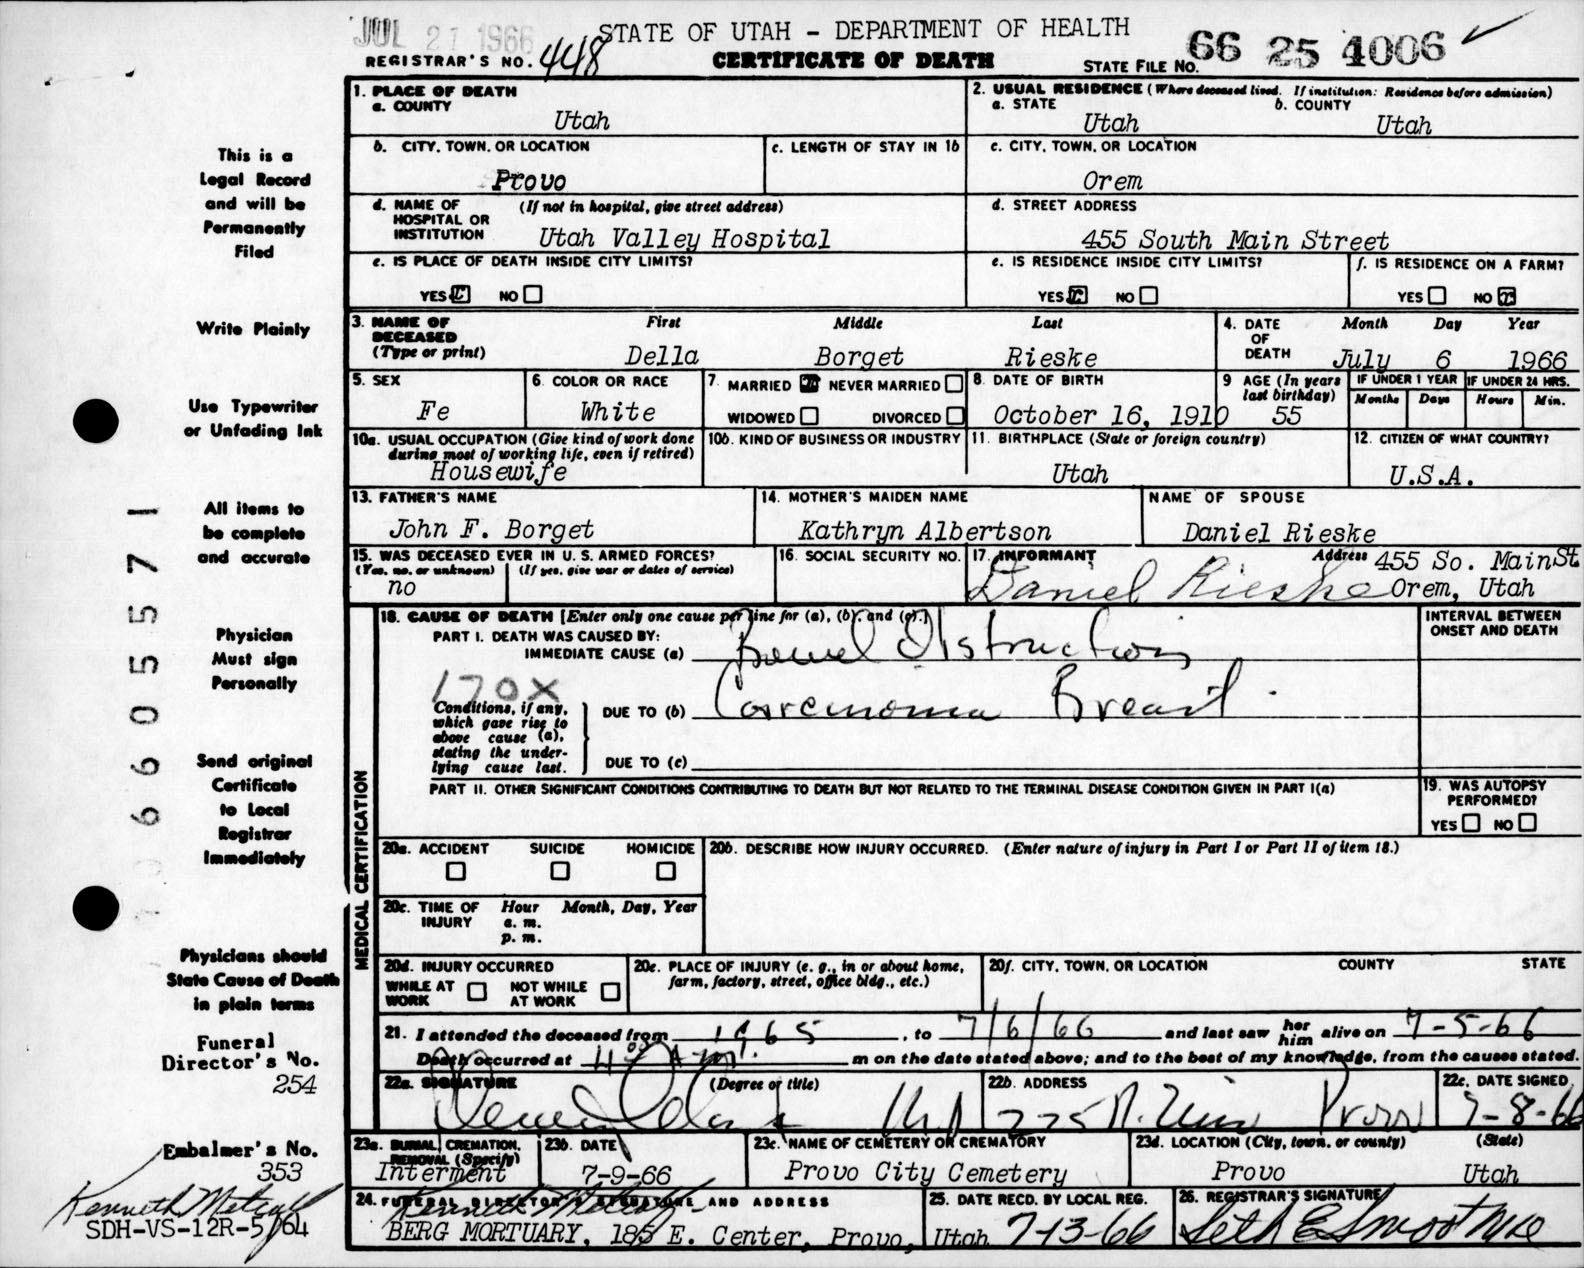 JUL 21 1966
STATE OF UTAH - DEPARTMENT OF HEALTH
REGISTRAR'S NO. 448
CERTIFICATE OF DEATH
STATE FILE NO. 66 25 4006
1. PLACE OF DEATH
a. COUNTY
Utah
2. USUAL RESIDENCE (Where deceased lived. If institution: Residence before admission)
a. STATE b. COUNTY
Utah Utah
b. CITY, TOWN, OR LOCATION
Provo
c. LENGTH OF STAY IN 1b
c. CITY, TOWN, OR LOCATION
Orem
d. NAME OF HOSPITAL OR INSTITUTION (If not in hospital, give street address)
Utah Valley Hospital
d. STREET ADDRESS
455 South Main Street
e. IS PLACE OF DEATH INSIDE CITY LIMITS?
YES NO
e. IS RESIDENCE INSIDE CITY LIMITS?
YES NO
f. IS RESIDENCE ON A FARM?
YES NO
3. NAME OF DECEASED (Type or print) First Middle Last
Della Borget Rieske
4. DATE OF DEATH Month Day Year
July 6 1966
5. SEX
Fe
6. COLOR OR RACE
White
7 MARRIED NEVER MARRIED
WIDOWED DIVORCED
8. DATE OF BIRTH
October 16, 1910
9 AGE (In years last birthday)
55
IF UNDER 1 YEAR IF UNDER 24 HRS.
Months Days Hours Min.
10a. USUAL OCCUPATION (Give kind of work done
during most of working life, even if retired)
Housewife
10b. KIND OF BUSINESS OR INDUSTRY
11. BIRTHPLACE (State or foreign country)
Utah
12. CITIZEN OF WHAT COUNTRY?
U.S.A.
13. FATHER'S NAME
John F. Borget
14. MOTHER'S MAIDEN NAME
Kathryn Albertson
NAME OF SPOUSE
Daniel Rieske
15. WAS DECEASED EVER IN U. S. ARMED FORCES?
(Yes, no, or unknown) (If yes, give war or dates of service)
no
16. SOCIAL SECURITY NO.
17. INFORMANT Address 455 So. Main St.
Daniel Rieske Orem, Utah
18. CAUSE OF DEATH [Enter only one cause per line for (a), (b), and (c).]
INTERVAL BETWEEN
ONSET AND DEATH
PART I. DEATH WAS CAUSED BY:
IMMEDIATE CAUSE (a) Bowel Obstruction
170X
Conditions, if any,
which gave rise to
above cause (a),
stating the under-
lying cause last.
DUE TO (b) Carcinoma Breast
DUE TO (c)
PART II. OTHER SIGNIFICANT CONDITIONS CONTRIBUTING TO DEATH BUT NOT RELATED TO THE TERMINAL DISEASE CONDITION GIVEN IN PART I(a)
19. WAS AUTOPSY
PERFORMED?
YES NO
MEDICAL CERTIFICATION
20a. ACCIDENT SUICIDE HOMICIDE
20b. DESCRIBE HOW INJURY OCCURRED. (Enter nature of injury in Part I or Part II of item 18.)
20c. TIME OF INJURY Hour Month, Day, Year
a. m.
p. m.
20d. INJURY OCCURRED
WHILE AT WORK NOT WHILE AT WORK
20e. PLACE OF INJURY (e. g., in or about home,
farm, factory, street, office bldg., etc.)
20f. CITY, TOWN, OR LOCATION COUNTY STATE
21. I attended the deceased from 1965, to 7/6/66 and last saw her him alive on 7-5-66
Death occurred at 4:00 A m. m on the date stated above; and to the best of my knowledge, from the causes stated.
22a. SIGNATURE (Degree or title)
MD
22b. ADDRESS
Provo
22c. DATE SIGNED
7-8-66
23a. BURIAL, CREMATION,
REMOVAL (Specify)
Interment
23b. DATE
7-9-66
23c. NAME OF CEMETERY OR CREMATORY
Provo City Cemetery
23d. LOCATION (City, town, or county) (State)
Provo Utah
24. FUNERAL DIRECTOR'S SIGNATURE AND ADDRESS
Kenneth Metcalf
BERG MORTUARY, 185 E. Center, Provo, Utah
25. DATE RECD. BY LOCAL REG.
7-13-66
26. REGISTRAR'S SIGNATURE
Seth E Smoot MD
This is a
Legal Record
and will be
Permanently
Filed
Write Plainly
Use Typewriter
or Unfading Ink
All items to
be complete
and accurate
Physician
Must sign
Personally
Send original
Certificate
to Local
Registrar
Immediately
Physicians should
State Cause of Death
in plain terms
Funeral
Director's No.
254
Embalmer's No.
353
Kenneth Metcalf
SDH-VS-12R-5/64
6605571